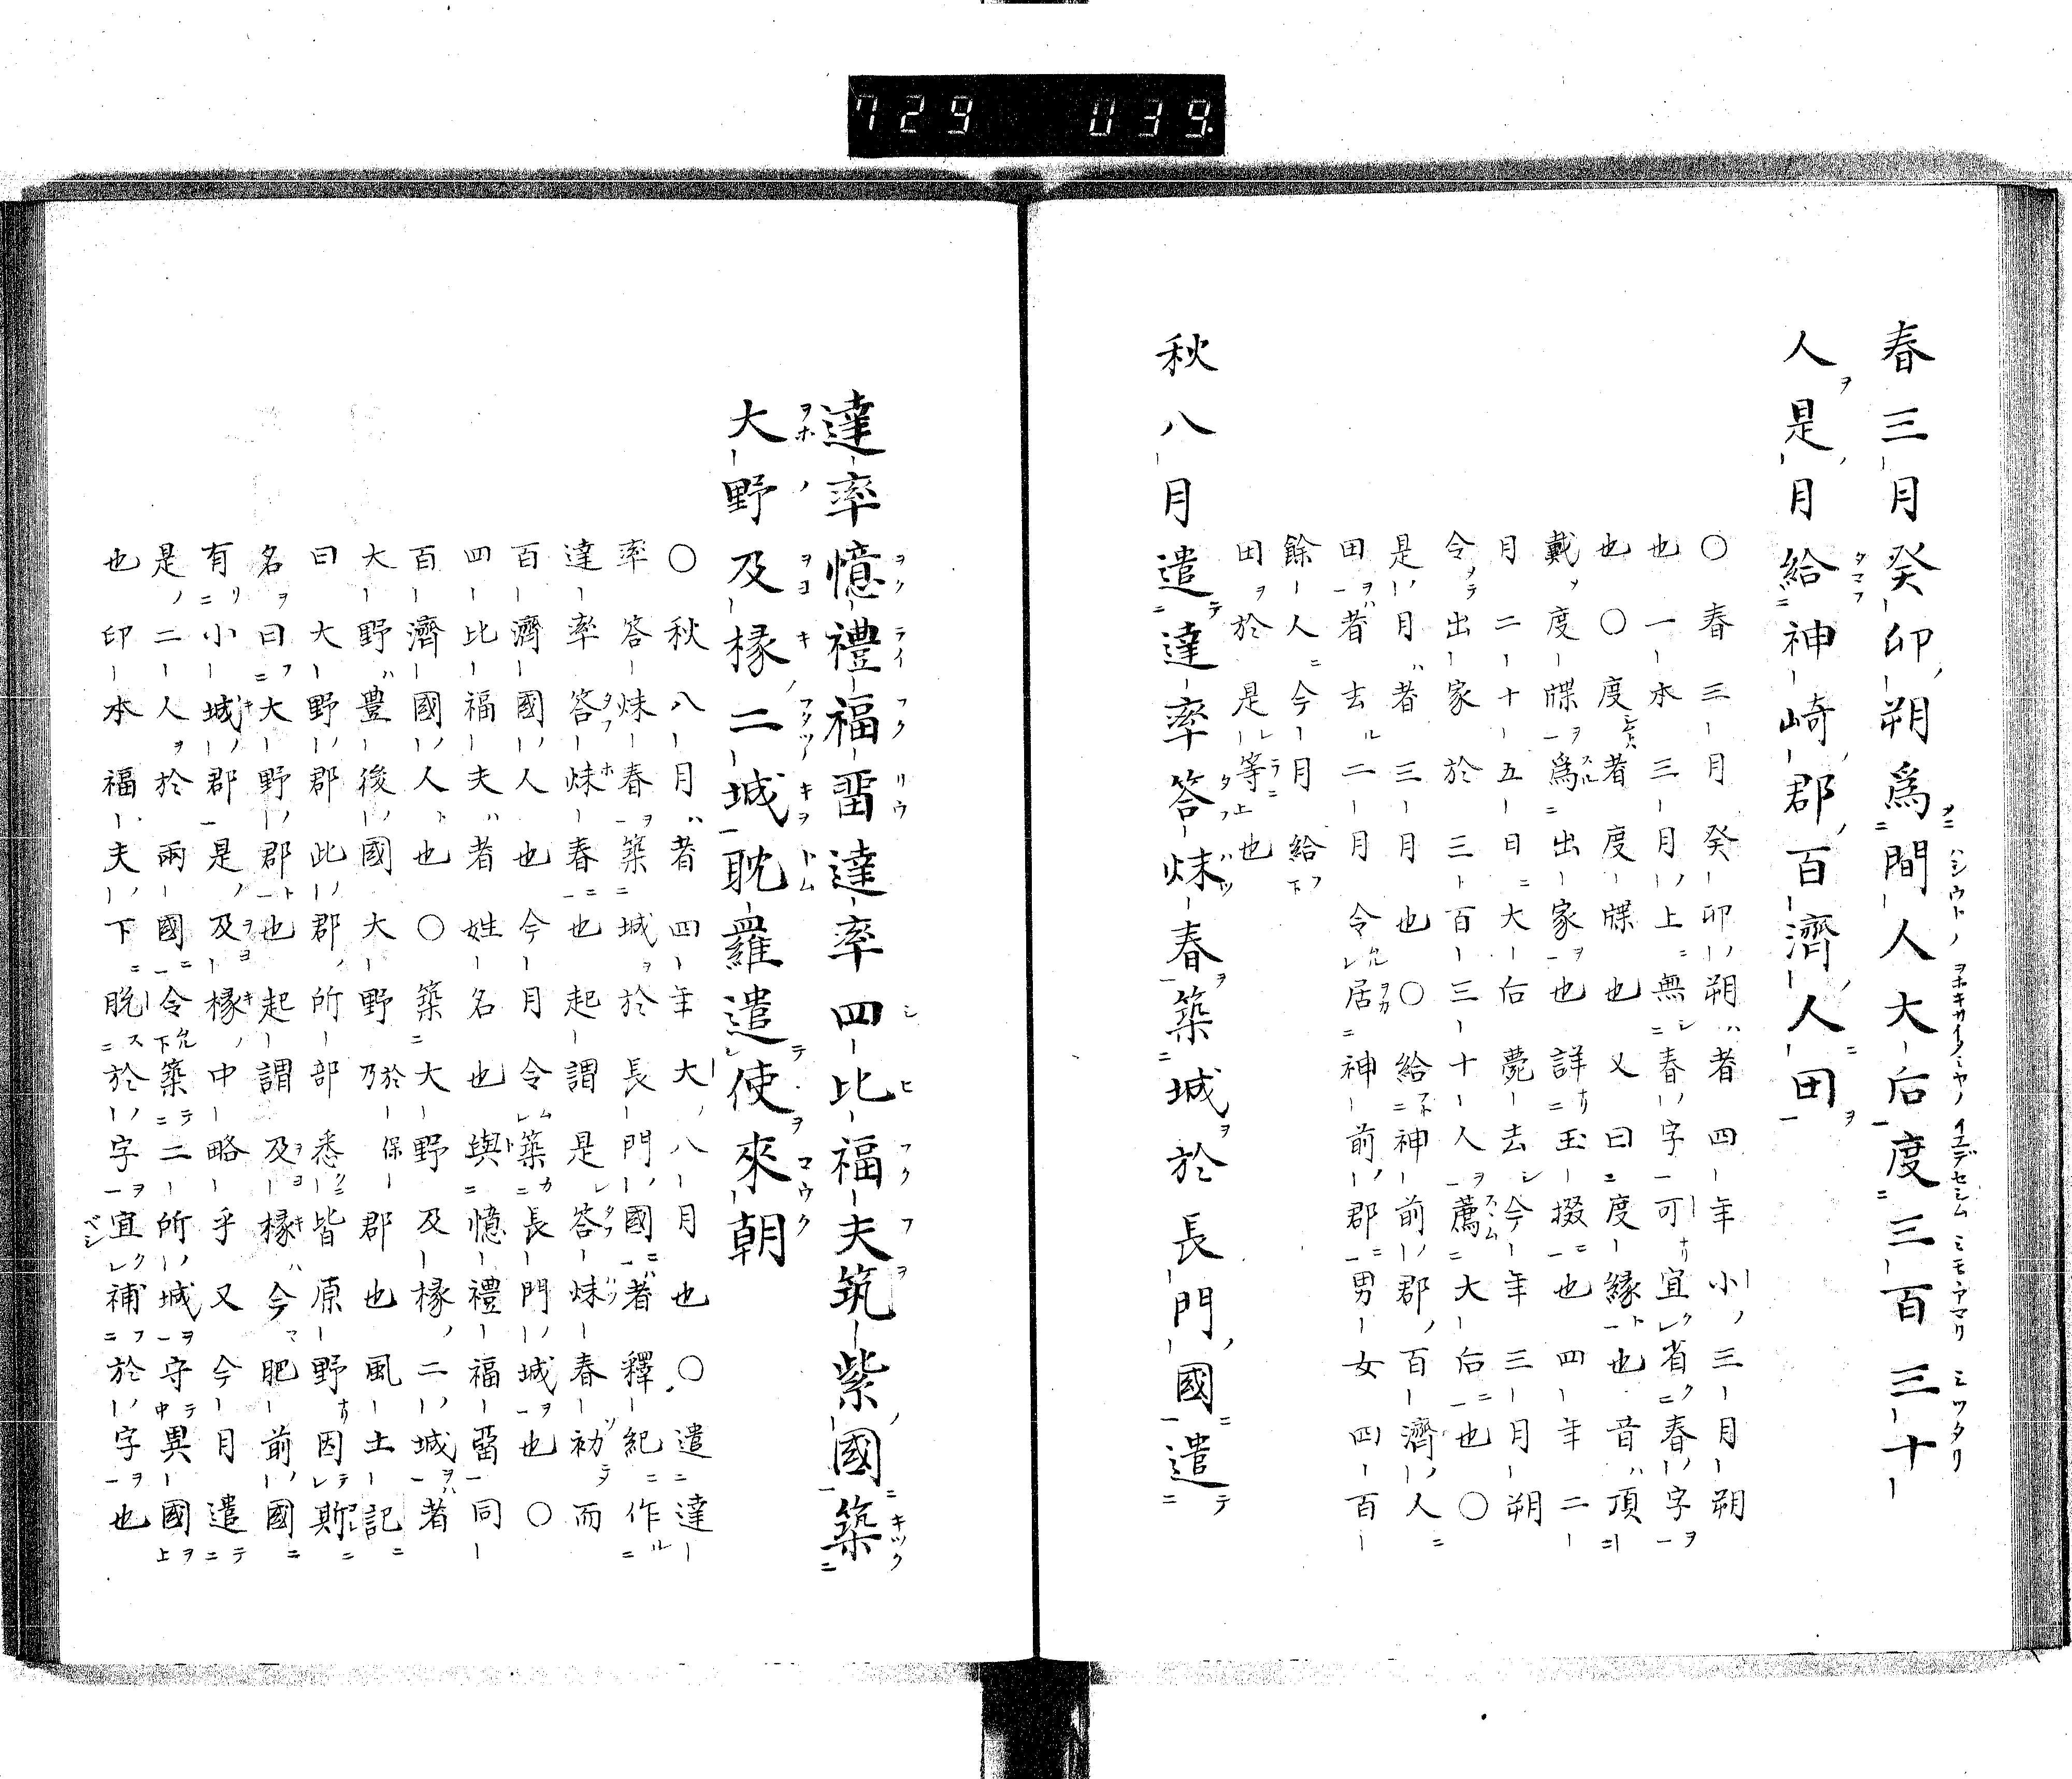 729 039.
春三月癸卯朔爲間人大后度三百三十
人是月給神崎郡百濟人田
〇春三月癸卯朔者四年小三月朔
也一本三月上無春字可宜省春字
也〇度者度牒也又曰度縁也音頂
戴度牒爲出家也詳玉掇也四年二
月二十五日大后薨去今年三月朔
令出家於三百三十人薦大后也〇
是月者三月也〇給神前郡百濟人
田者去二月令居神前郡男女四百
餘人今月給
田於是等也
秋八月遣達率答㶱春築城於長門國遣
達率憶禮福畱達率四比福夫筑紫國築
大野及椽二城耽羅遣使來朝
〇秋八月者四年大八月也〇遣達
率答㶱春築城於長門國者釋紀作
達率答㶱春也起謂是答㶱春初而
百濟國人也今月令築長門城也〇
四比福夫者姓名也與憶禮福畱同
百濟國人也〇築大野及椽二城者
大野豊後國大野乃於保郡也風土記
曰大野郡此郡所部悉皆原野因斯
名曰大野郡也起謂及椽今肥前國
有小城郡是及椽中略乎又今月遣
是二人於兩國令築二所城守異國
也印本福夫下脱於字宜補於字也